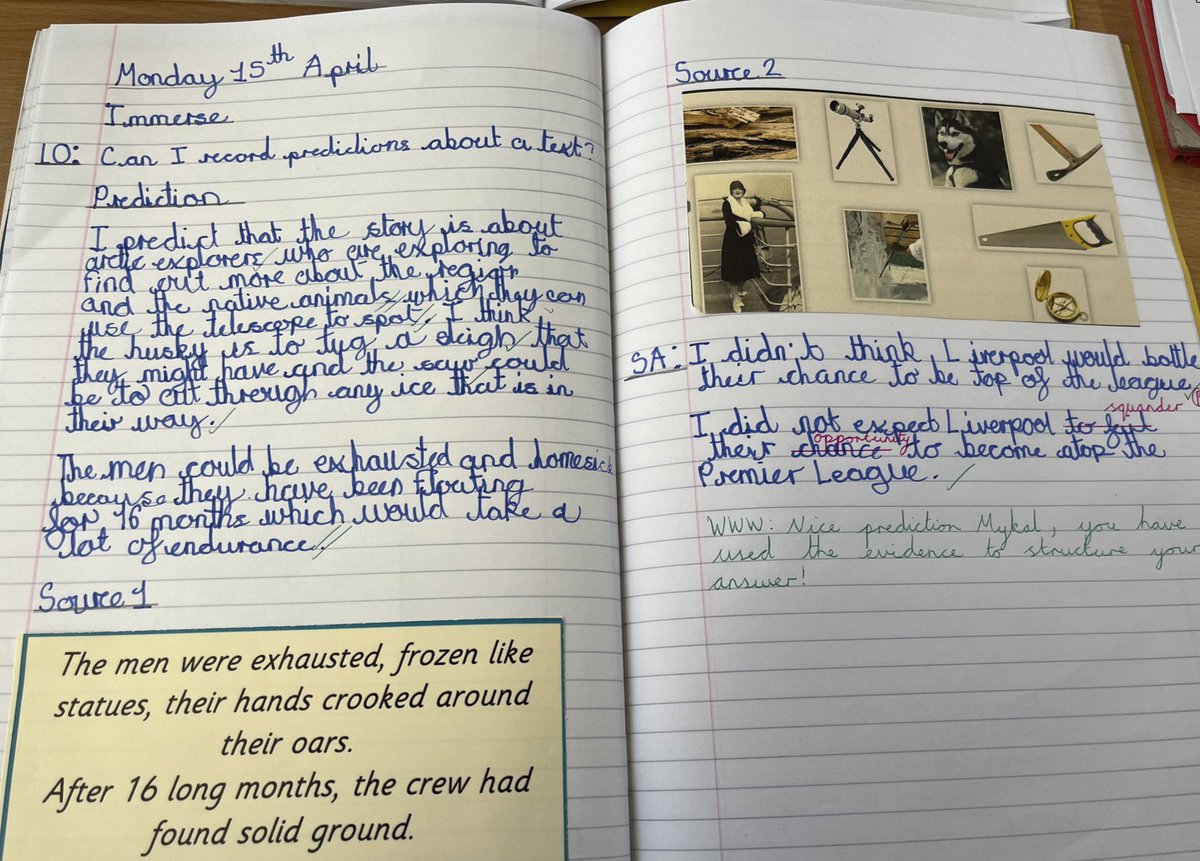 Monday 15th April
Immerse
LO: Can I record predictions about a text?
Prediction
I predict that the story is about
arctic explorers who are exploring to
find out more about the region
and the native animals which they can
use the telescope to spot. I think
the husky is to tug a sleigh that
they might have and the saw could
be to cut through any ice that is in
their way.
The men could be exhausted and homesick
because they have been floating
for 16 months which would take a
lot of endurance.
Source 1
The men were exhausted, frozen like
statues, their hands crooked around
their oars.
After 16 long months, the crew had
found solid ground.
Source 2
SA: I didn't think Liverpool would bottle
their chance to be top of the league
squander
I did not expect Liverpool to
opportunity
their chance to become atop the
Premier League.
WWW: Nice prediction Mykal, you have
used the evidence to structure your
answer!